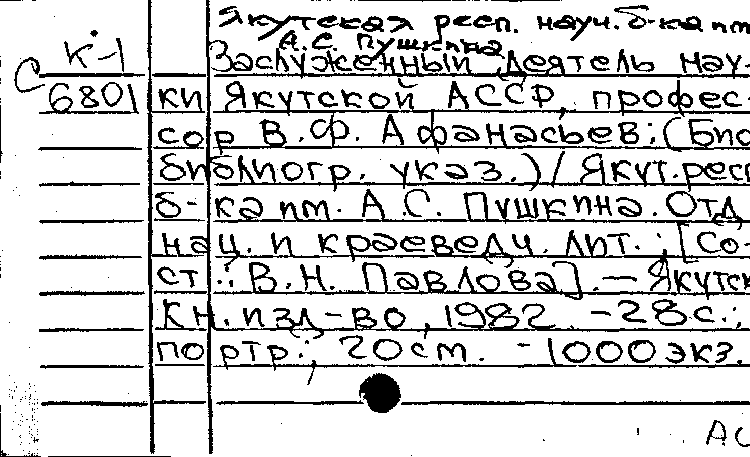 Якутская респ. науч. б-ка им.
А.С. Пушкина
К-1
Заслуженный деятель нау-
С 6801 ки Якутской АССР, професс-
сор В.Ф. Афанасьев: (Био-
библиогр. указ.) / Якут. респ
б-ка им. А.С. Пушкина. Отд
нац. и краеведч. лит.; [Со-
ст.: В.Н. Павлова]. — Якутск
Кн. изд-во, 1982. - 28 с.;
портр.; 20 см. - 1000 экз.
АС